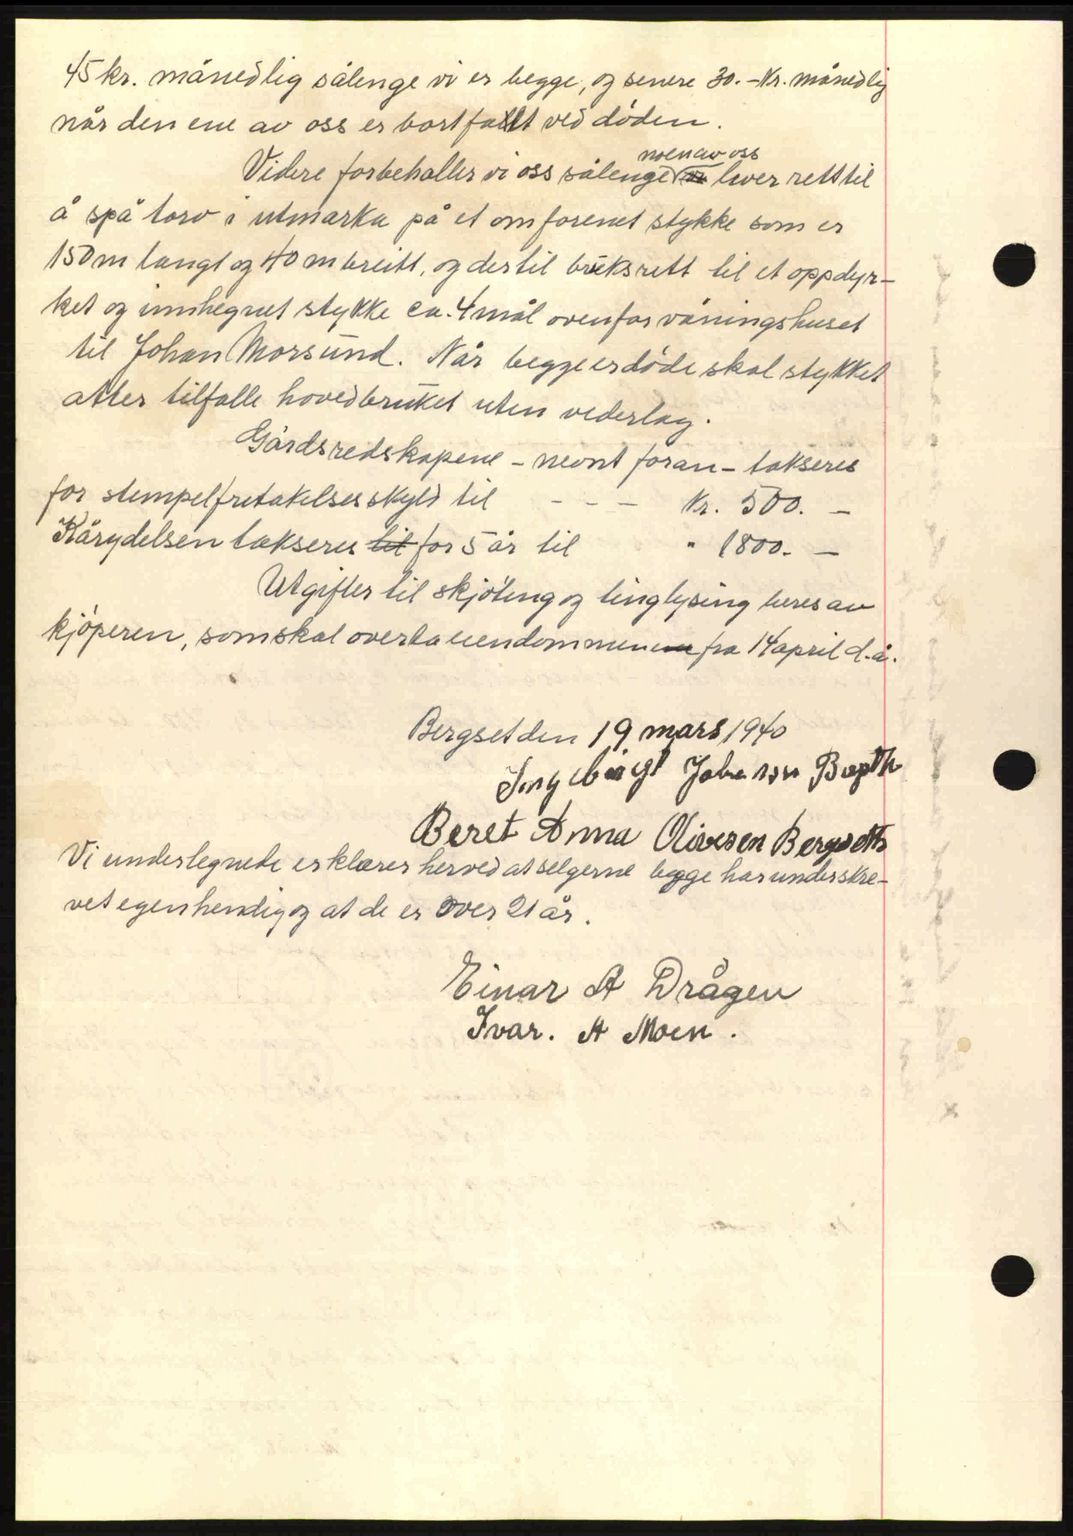 45 kr. månedlig sålenge vi er begge, og senere 30.- Kr. månedlig
når den ene av oss er bortfallt ved døden.
noen av oss
Videre forbeholler vi oss sålenge vi lever rett til
å spå torv i utmarka på et omforenet stykke som er
150 m langt og 40 m breitt, og dertil bruksrett til et oppdyr-
ket og innhegnet stykke ca. 4 mål ovenfor våningshuset
til Johan Morsund. Når begge er døde skal stykket
atter tilfalle hovedbruket uten vederlag.
Gårdsredskapene - nevnt foran - takseres
for stempelfretakelses skyld til - - - Kr. 500. -
Kårydelsen takseres til for 5 år til " 1800. -
Utgifter til skjøting og tinglysing beres av
kjøperen, som skal overta eiendommen fra 14 april d.å.
Bergset den 19 mars 1940
Ingebrigt Johansen
Beret Anna Olivesen Bergseth
Vi undertegnede erklærer herved at selgerne begge har underskre-
vet egenhendig og at de er over 21 år.
Einar A Drågen
Ivar. A Moen.